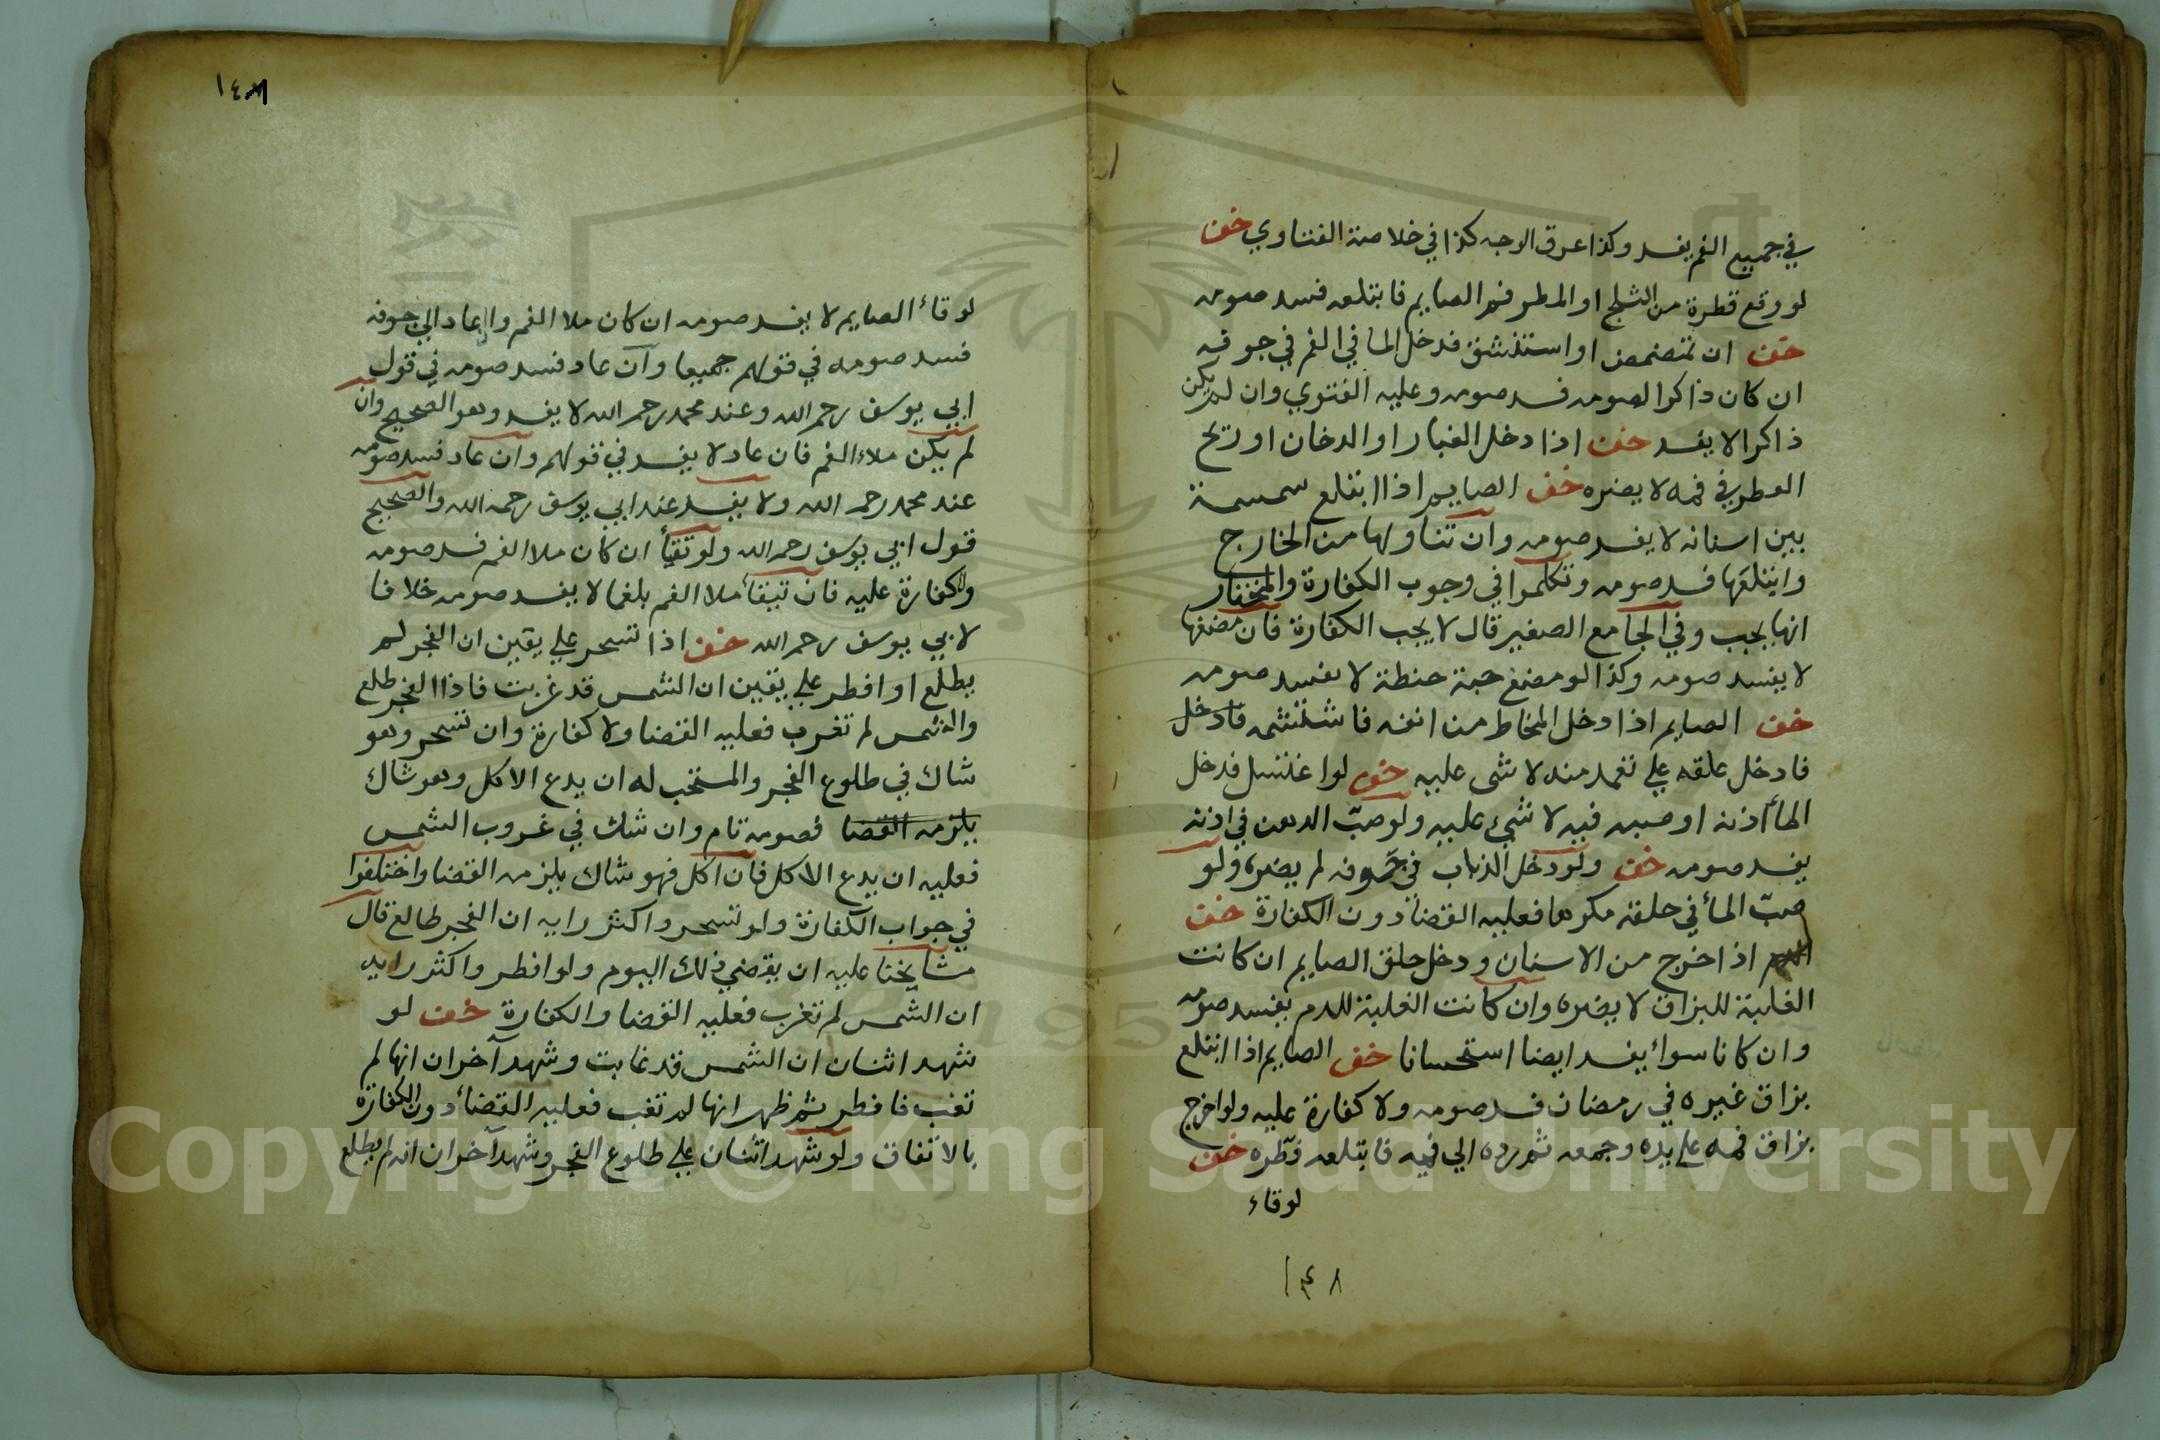 في جميع الفم يفسد وكذا عرق الوجه كذا في خلاصة الفتاوي خف
لو وقع قطرة من الثلج او المطر فم الصايم فابتلعه فسد صومه
خف ان تمضمض او استنشق فدخل الما في الفم في جوفه
ان كان ذاكرا لصومه فسد صومه وعليه الفتوي وان لم يكن
ذاكرا لا يفسد خف اذا دخل الغبار او الدخان او ريح
العطر في فمه لا يضره خف الصايم اذا ابتلع سمسمة
بين اسنانه لا يفسد صومه وان تناولها من الخارج
وابتلعها فسد صومه وتكلموا في وجوب الكفارة والمختار
انها يجب وفي الجامع الصغير قال لا يجب الكفارة فان مضغها
لا يفسد صومه وكذا لو مضغ حبة حنطة لا يفسد صومه
خف الصايم اذا دخل المخاط من انفه فاستنشمه فادخل
فادخل حلقه علي تعمد منه لا شي عليه خف لو اغتسل فدخل
الماأ اذنه او صبه فيه لا شيء عليه ولو صبّ الدهن في اذنه
يفسد صومه خف ولو دخل الذباب في جوفه لم يضره ولو
صبّ المأ في حلقه مكرها فعليه القضأ دون الكفارة خف
الدم اذا خرج من الاسنان ودخل حلق الصايم ان كانت
الغلبة للبزاق لا يضره وان كانت الغلبة للدم يفسد صومه
وان كانا سواء يفسد ايضا استحسانا خف الصايم اذا ابتلع
بزاق غيره في رمضان فسد صومه ولا كفارة عليه ولو اخرج
بزاق فمه علي يده وجمعه ثم رده الي فيه فابتلعه فطّره خف
لو قاء
١٤٨
١٤٨
لو قاء الصايم لا يفسد صومه ان كان ملا الفم وان عاد الي جوفه
فسد صومه في قولهم جميعا وان عاد فسد صومه في قول
ابي يوسف رحمه الله وعند محمد رحمه الله لا يفسد وهو الصحيح وان
لم يكن ملاء الفم فان عاد لا يفسد في قولهم وان عاد فسد صومه
عند محمد رحمه الله ولا يفسد عند ابي يوسف رحمه الله والصحيح
قول ابي يوسف رحمه الله ولو تقيأ ان كان ملا الفم فسد صومه
ولا كفارة عليه فان تيقأ ملا الفم بلغما لا يفسد صومه خلافا
لابي يوسف رحمه الله خف اذا تسحر علي يقين ان الفجر لم
يطلع او افطر علي يقين ان الشمس قد غربت فاذا الفجر طلع
والشمس لم تغرب فعليه القضا ولا كفارة وان تسحر وهو
شاك في طلوع الفجر والمستحب له ان يدع الاكل وهو شاك
يلزمه القضا فصومه تام وان شك في غروب الشمس
فعليه ان يدع الاكل فان اكل فهو شاك يلزمه القضا واختلفوا
في جواب الكفارة ولو تسحر واكثر رايه ان الفجر طالع قال
مشايخنا عليه ان يقضي ذلك اليوم ولو افطر واكثر رايه
ان الشمس لم تغرب فعليه القضا والكفارة خف لو
شهد اثنان ان الشمس قد غابت وشهد آخران انها لم
تغب فافطر ثم ظهر انها لم تغب فعليه القضأ دون الكفارة
بالاتفاق ولو شهد اثنان علي طلوع الفجر وشهد آخران انه لم يطلع
Copyright © King Saud University